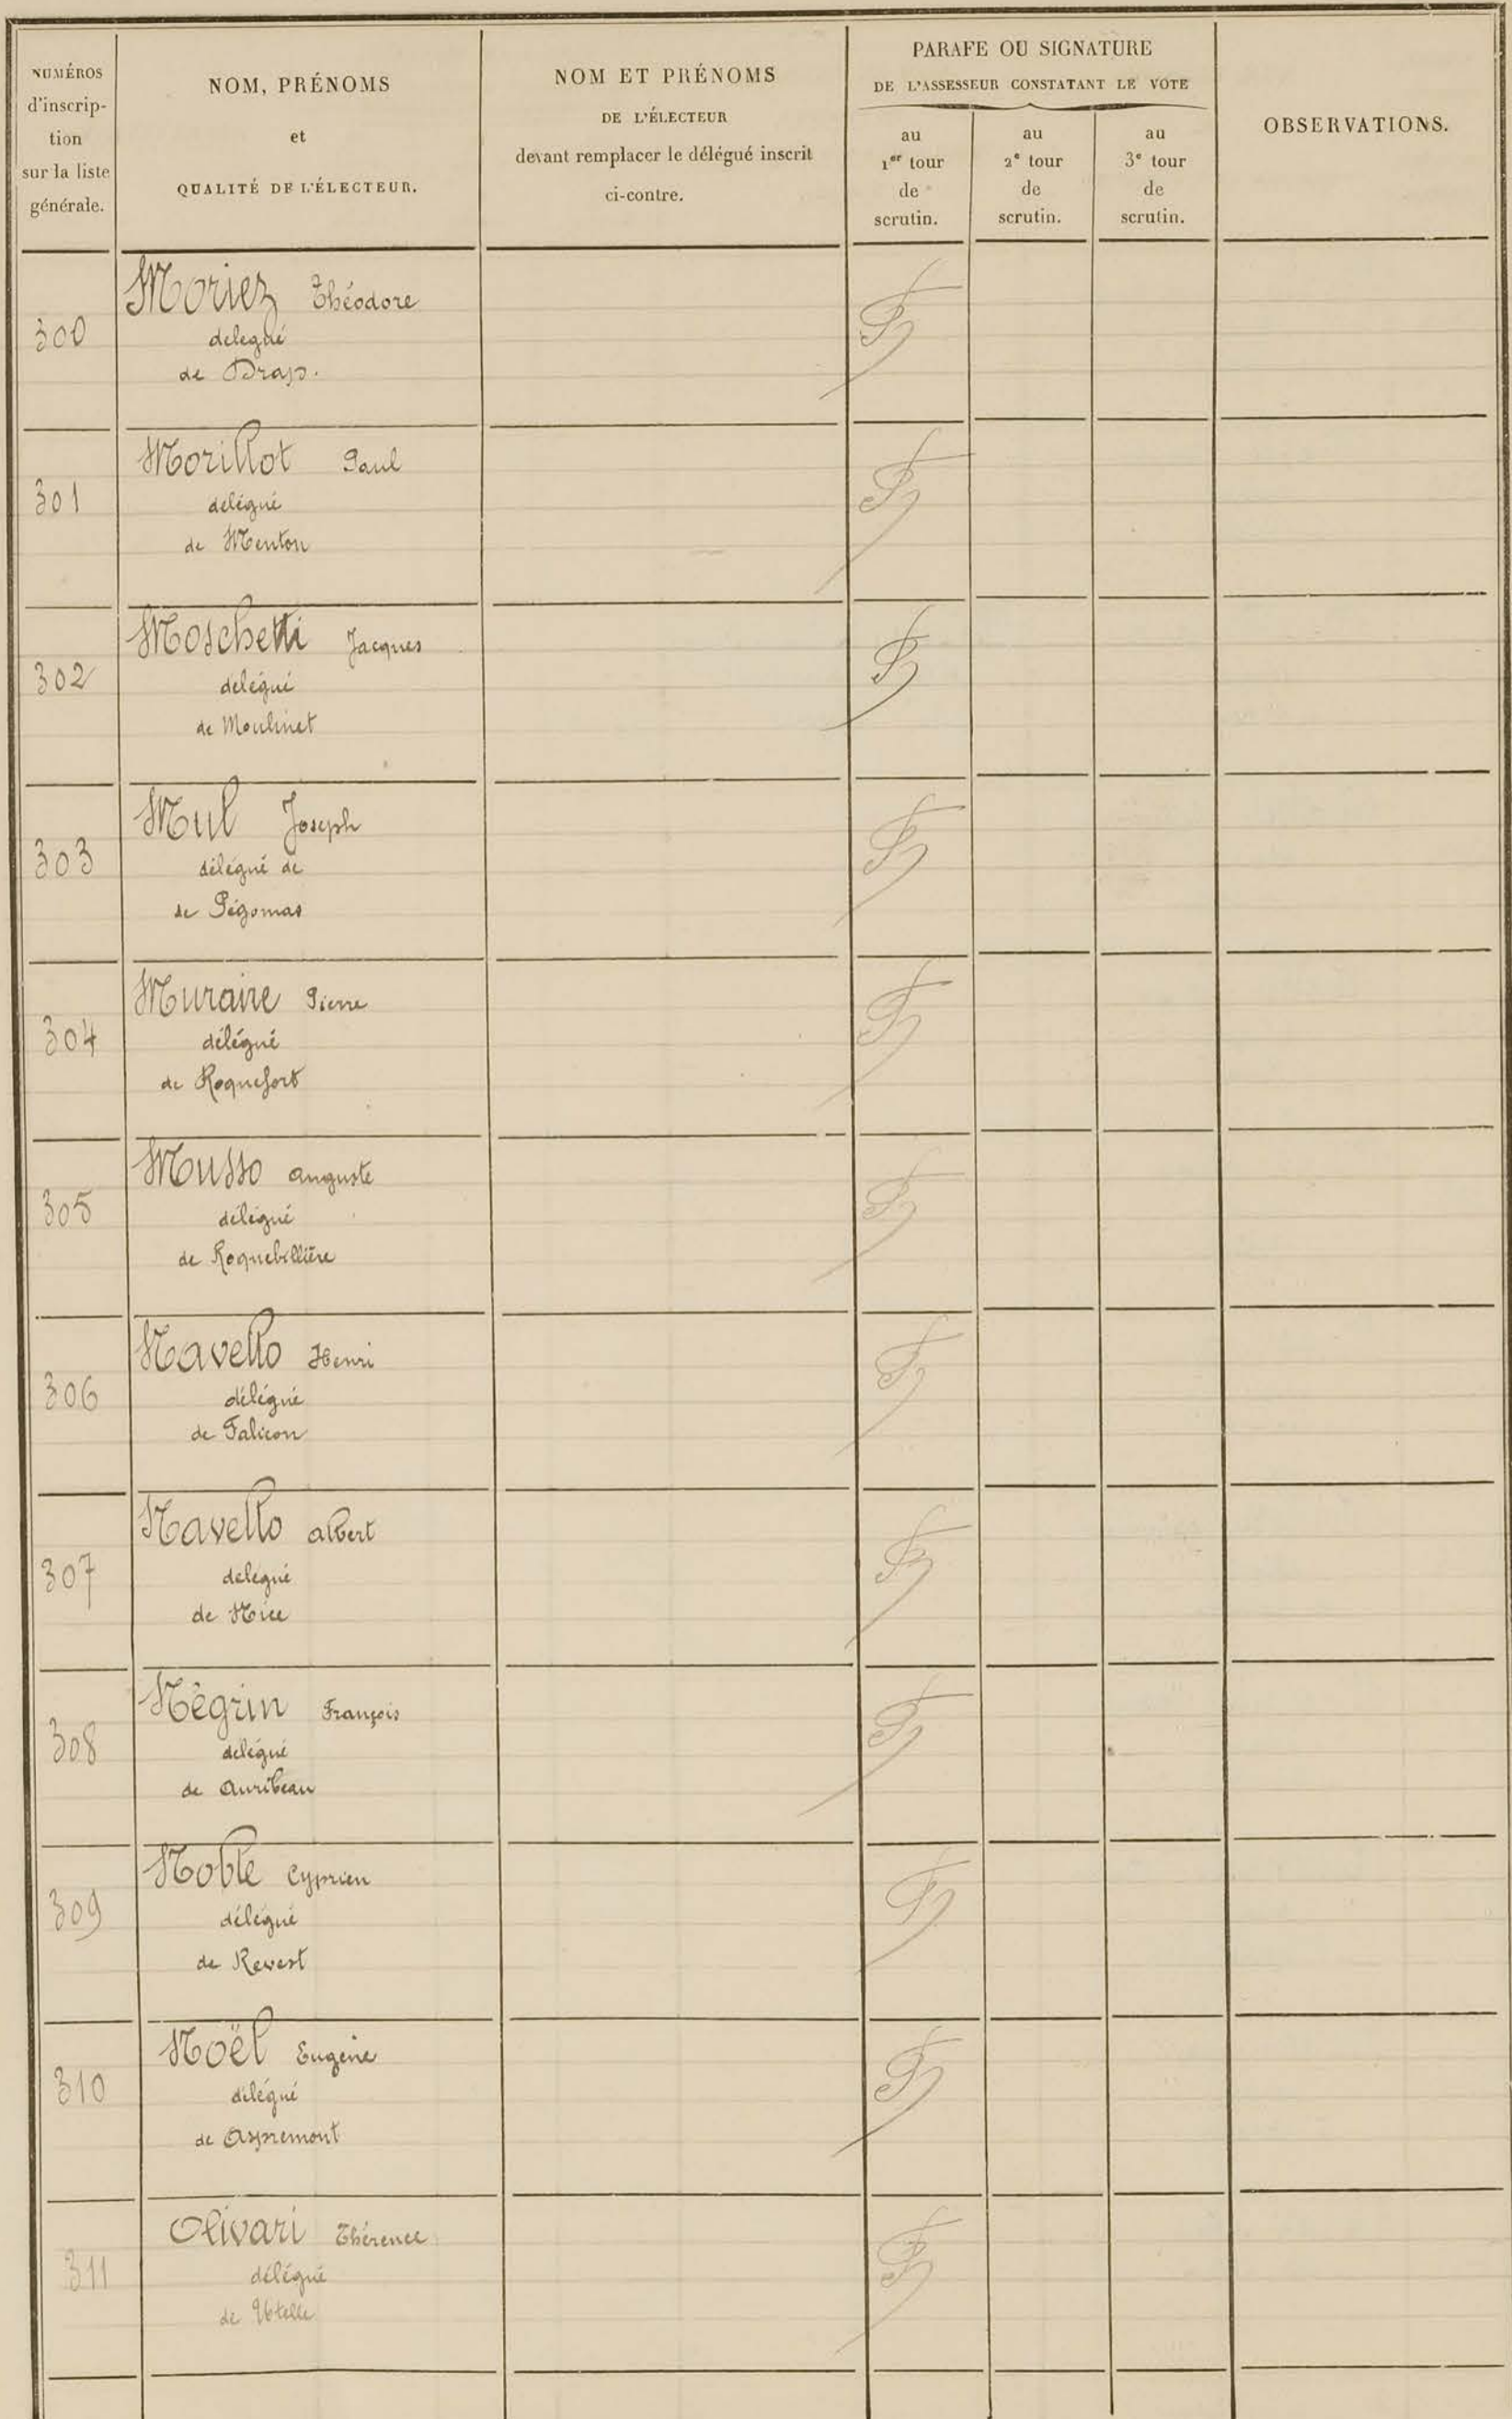 NUMÉROS
d'inscrip-
tion
sur la liste
générale.
NOM, PRÉNOMS
et
QUALITÉ DE L'ÉLECTEUR.
NOM ET PRÉNOMS
DE L'ÉLECTEUR
devant remplacer le délégué inscrit
ci-contre.
PARAFE OU SIGNATURE
DE L'ASSESSEUR CONSTATANT LE VOTE
au
1er tour
de
scrutin.
au
2e tour
de
scrutin.
au
3e tour
de
scrutin.
OBSERVATIONS.
300
Moriez Théodore
delegué
de Drap.
301
Morillot Paul
delégué
de Menton
302
Moschetti Jacques
delégué
de Moulinet
303
Mul Joseph
délégué de
de Pégomas
304
Muraire Pierre
délégué
de Roquefort
305
Musso Auguste
délégué
de Roquebillière
306
Navello Henri
délégué
de Falicon
307
Navello Albert
delégué
de Nice
308
Négrin François
delégué
de Auribeau
309
Noble Cyprien
délégué
de Revest
310
Noël Eugène
délégué
de Aspremont
311
Olivari Thérence
délégué
de Utelle